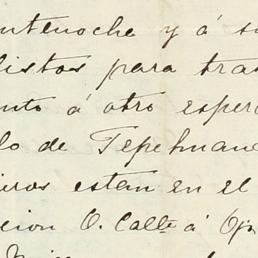 ntenoche y á su
listos para tras
nto á otro esper
lo de Tepehuane
ieros estan en el
cion O. Calle á Oji